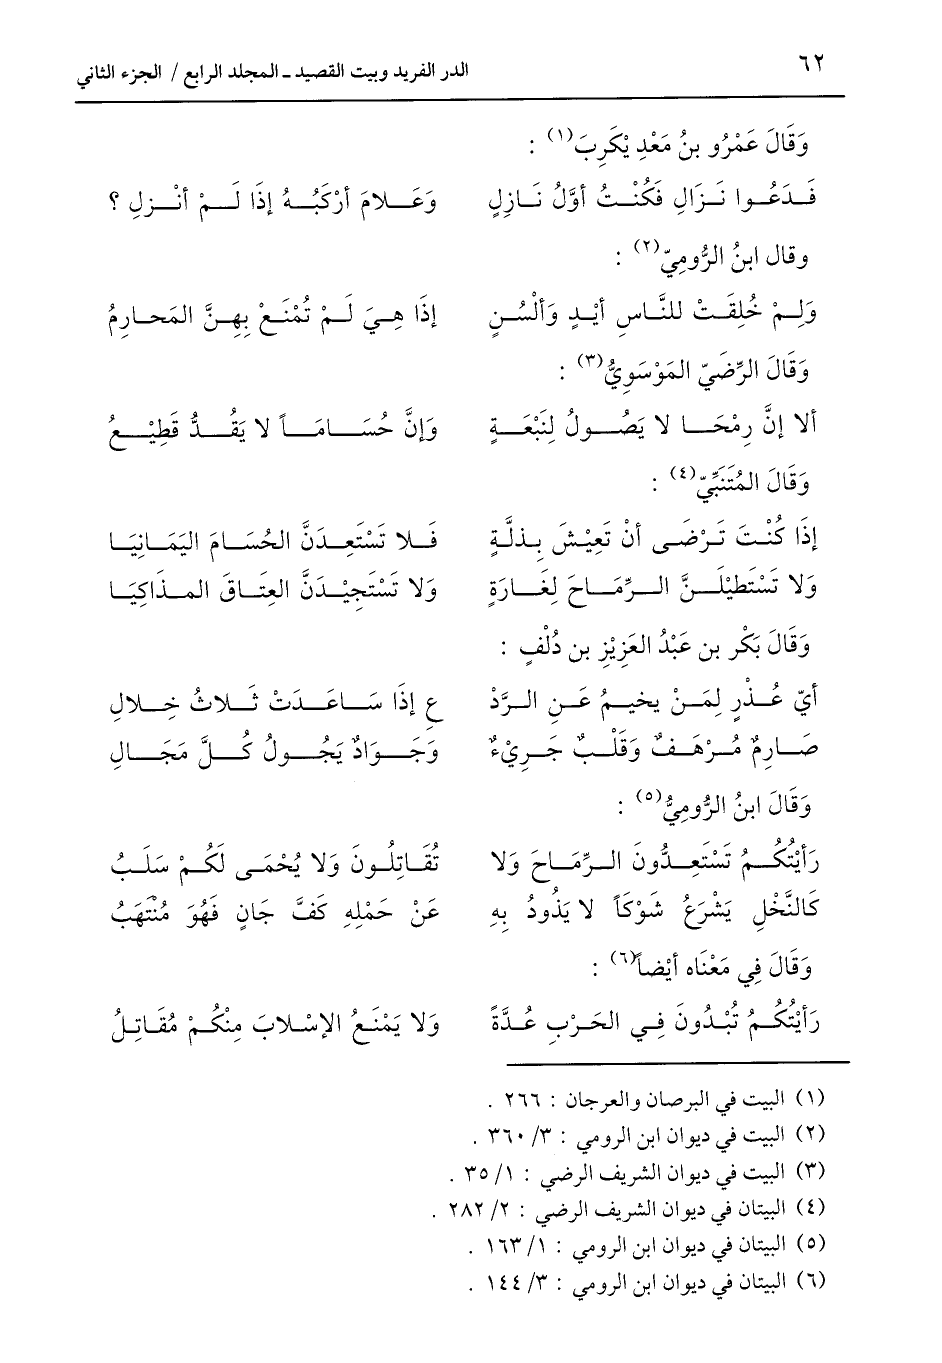 ٦٢ الدر الفريد وبيت القصيد ـ المجلد الرابع / الجزء الثاني
وَقَالَ عَمْرُو بنُ مَعْدِ يْكَرِبَ(١) :
فَدَعُوا نَزَالِ فَكُنْتُ أَوَّلُ نَازِلٍ وَعَلامَ أَرْكَبُهُ إِذَا لَمْ أَنْزِلِ ؟
وقال ابنُ الرُّومِيّ(٢) :
وَلِمْ خُلِقَتْ للنَّاسِ أَيْدٍ وَأَلْسُنٍ إِذَا هِيَ لَمْ تُمْنَعْ بِهِنَّ المَحارِمُ
وَقَالَ الرِّضَيّ المَوْسَوِيُّ(٣) :
أَلا إِنَّ رِمْحَا لا يَصُولُ لِنَبْعَةٍ وَإِنَّ حُسَامَاً لا يَقُدُّ قَطِيْعُ
وَقَالَ المُتَنَبِّيّ(٤) :
إِذَا كُنْتَ تَرْضَى أَنْ تَعِيْشَ بِذلَّةٍ فَلا تَسْتَعِدَنَّ الحُسَامَ اليَمَانِيَا
وَلا تَسْتَطِيْلَنَّ الرِّمَاحَ لِغَارَةٍ وَلا تَسْتَجِيْدَنَّ العِتَاقَ المذَاكِيَا
وَقَالَ بَكْر بن عَبْدُ العَزِيْزِ بن دُلْفٍ :
أَيّ عُذْرٍ لِمَنْ يخيمُ عَنِ الرَّدْ ع إِذَا سَاعَدَتْ ثَلاثُ خِلالِ
صَارِمٌ مُرْهَفٌ وَقَلْبٌ جَرِيْءٌ وَجَوَادٌ يَجُولُ كُلَّ مَجَالِ
وَقَالَ ابنُ الرُّومِيُّ(٥) :
رَأَيْتُكُمُ تَسْتَعِدُّونَ الرِّمَاحَ وَلا تُقَاتِلُونَ وَلا يُحْمَى لَكُمْ سَلَبُ
كَالنَّخْلِ يَشْرَعُ شَوْكَاً لا يَذُودُ بِهِ عَنْ حَمْلِهِ كَفَّ جَانٍ فَهُوَ مُنْتَهَبُ
وَقَالَ فِي مَعْنَاه أَيْضاً(٦) :
رَأَيْتُكُمُ تُبْدُونَ فِي الحَرْبِ عُدَّةً وَلا يَمْنَعُ الإسْلابَ مِنْكُمْ مُقَاتِلُ
(١) البيت في البرصان والعرجان : ٢٦٦ .
(٢) البيت في ديوان ابن الرومي : ٣/ ٣٦٠ .
(٣) البيت في ديوان الشريف الرضي : ١/ ٣٥ .
(٤) البيتان في ديوان الشريف الرضي : ٢/ ٢٨٢ .
(٥) البيتان في ديوان ابن الرومي : ١/ ١٦٣ .
(٦) البيتان في ديوان ابن الرومي : ٣/ ١٤٤ .